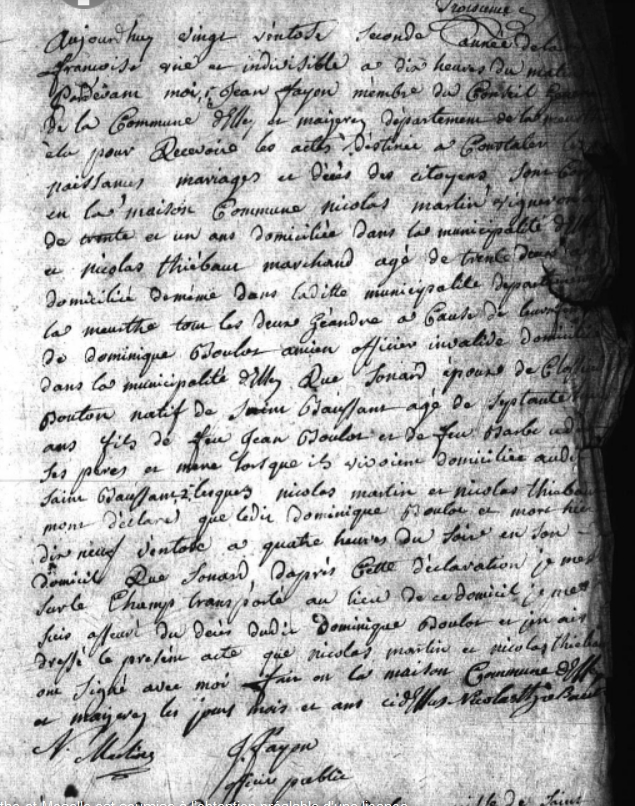 Troisieme
Aujourdhuy vingt ventose seconde année de la
francoise une et indivisible a dix heures du matin
pardevant moi Jean fayon membre du Conseil General
de la Commune d'Essey et maizerey département de la meurthe
élu pour Recevoire les actes destinée a Constater
naissances mariages et décés des citoyens sont
en la maison Commune nicolas martin vigneron
de trente et un ans domiciliée dans la municipalité d'Essey
et nicolas thiébaut marchand agé de trente deux
domiciliée demême dans laditte municipalité departement
la meurthe tout les deux Geandre a Cause de leur
de dominique Boulot ancien officier invalide domicilié
dans la municipalité d'Essey Que Sonard épouse de
Bouton natif de Saint Baussant age de Septante
ans fils de feu Jean Boulot et de feu Barbe
Ses peres et mere lorsque ils vivoient domiciliée audit
Saint Baussant lesquez nicolas martin et nicolas thiebaut
mont déclaré que ledit dominique Boulot et mort hier
dix neuf ventose a quatre heures du Soir en son
domicil Que Sonard dapres Cette déclaration je me
sur le Champ transporté au lieu de ce domicil je me
suis assuré du décés dudit Dominique Boulot et jen ais
dressé le present acte que nicolas martin et nicolas thiebaut
ont Signé avec moi fait en la maison Commune d'Essey
et maizerey les jours mois et ans cidessus Nicolas
N. Martin
J. fayon
officie public